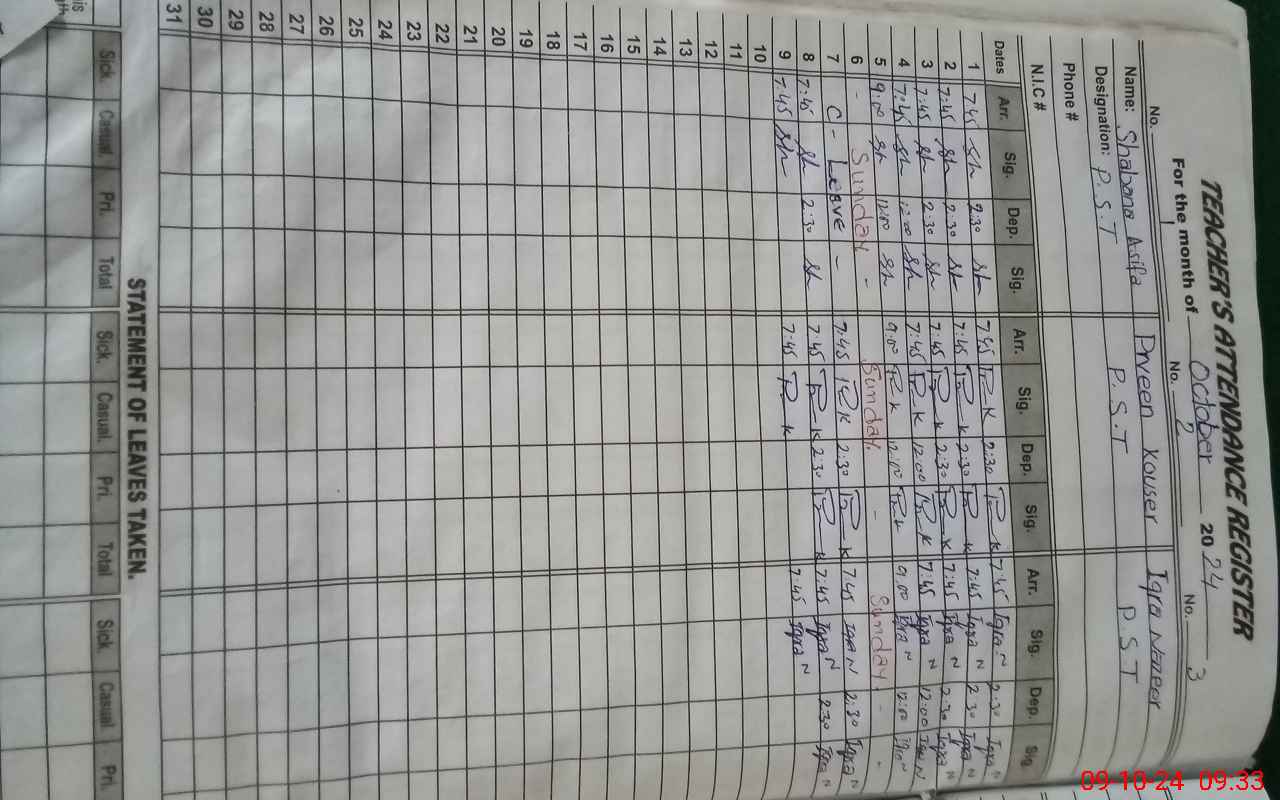 TEACHER'S ATTENDANCE REGISTER
For the month of October 2024
No. 1 No. 2 No. 3
Name: Shabana Asifa Prveen Kouser Iqra Nazeer
Designation: P.S.T P.S.T P S T
Phone #
N.I.C #
Dates Arr. Sig. Dep. Sig. Arr. Sig. Dep. Sig. Arr. Sig. Dep. Sig.
1 7:45 Sh 2:30 Sh 7:45 P K 2:30 P K 7:45 Iqra N 2:30 Iqra N
2 7:45 Sh 2:30 Sh 7:45 P K 2:30 P K 7:45 Iqra N 2:30 Iqra N
3 7:45 Sh 2:30 Sh 7:45 P K 2:30 P K 7:45 Iqra N 2:30 Iqra N
4 7:45 Sh 12:00 Sh 7:45 P K 12:00 P K 7:45 Iqra N 12:00 Iqra N
5 9:00 Sh 12:00 Sh 9:00 P K 12:00 P K 9:00 Iqra N 12:00 Iqra N
6 - Sunday - Sunday - Sunday - -
7 C - Leave - 7:45 P K 2:30 P K 7:45 Iqra N 2:30 Iqra N
8 7:45 Sh 2:30 Sh 7:45 P K 2:30 P K 7:45 Iqra N 2:30 Iqra N
9 7:45 Sh 7:45 P K 7:45 Iqra N
10
11
12
13
14
15
16
17
18
19
20
21
22
23
24
25
26
27
28
29
30
31
STATEMENT OF LEAVES TAKEN.
Sick. Casual. Pri. Total Sick. Casual. Pri. Total Sick. Casual Pri.
09-10-24 09.33